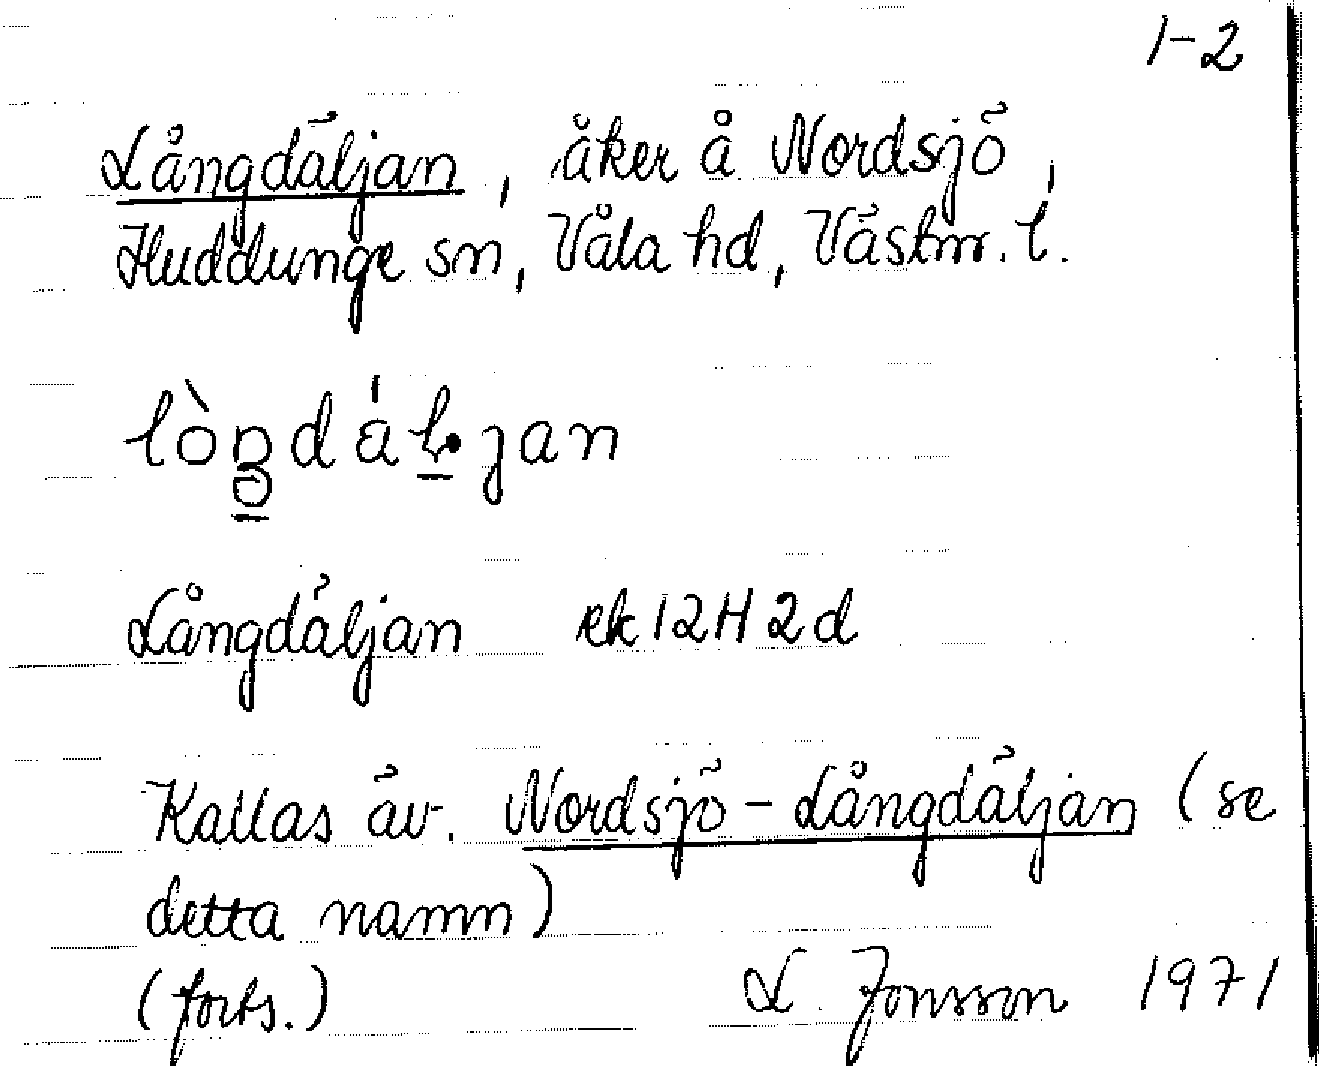 1-2
Långdäljan, åker å Nordsjö,
Huddunge sn, Våla hd, Västm. l.
Långdäljan ek 12H2d
Kallas äv. Nordsjö-Långdäljan (se
detta namn)
(forts.) L. Jonsson 1971